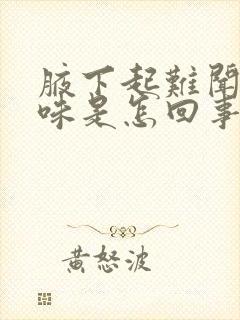 腋下起難聞
味是怎回事
黃怒波